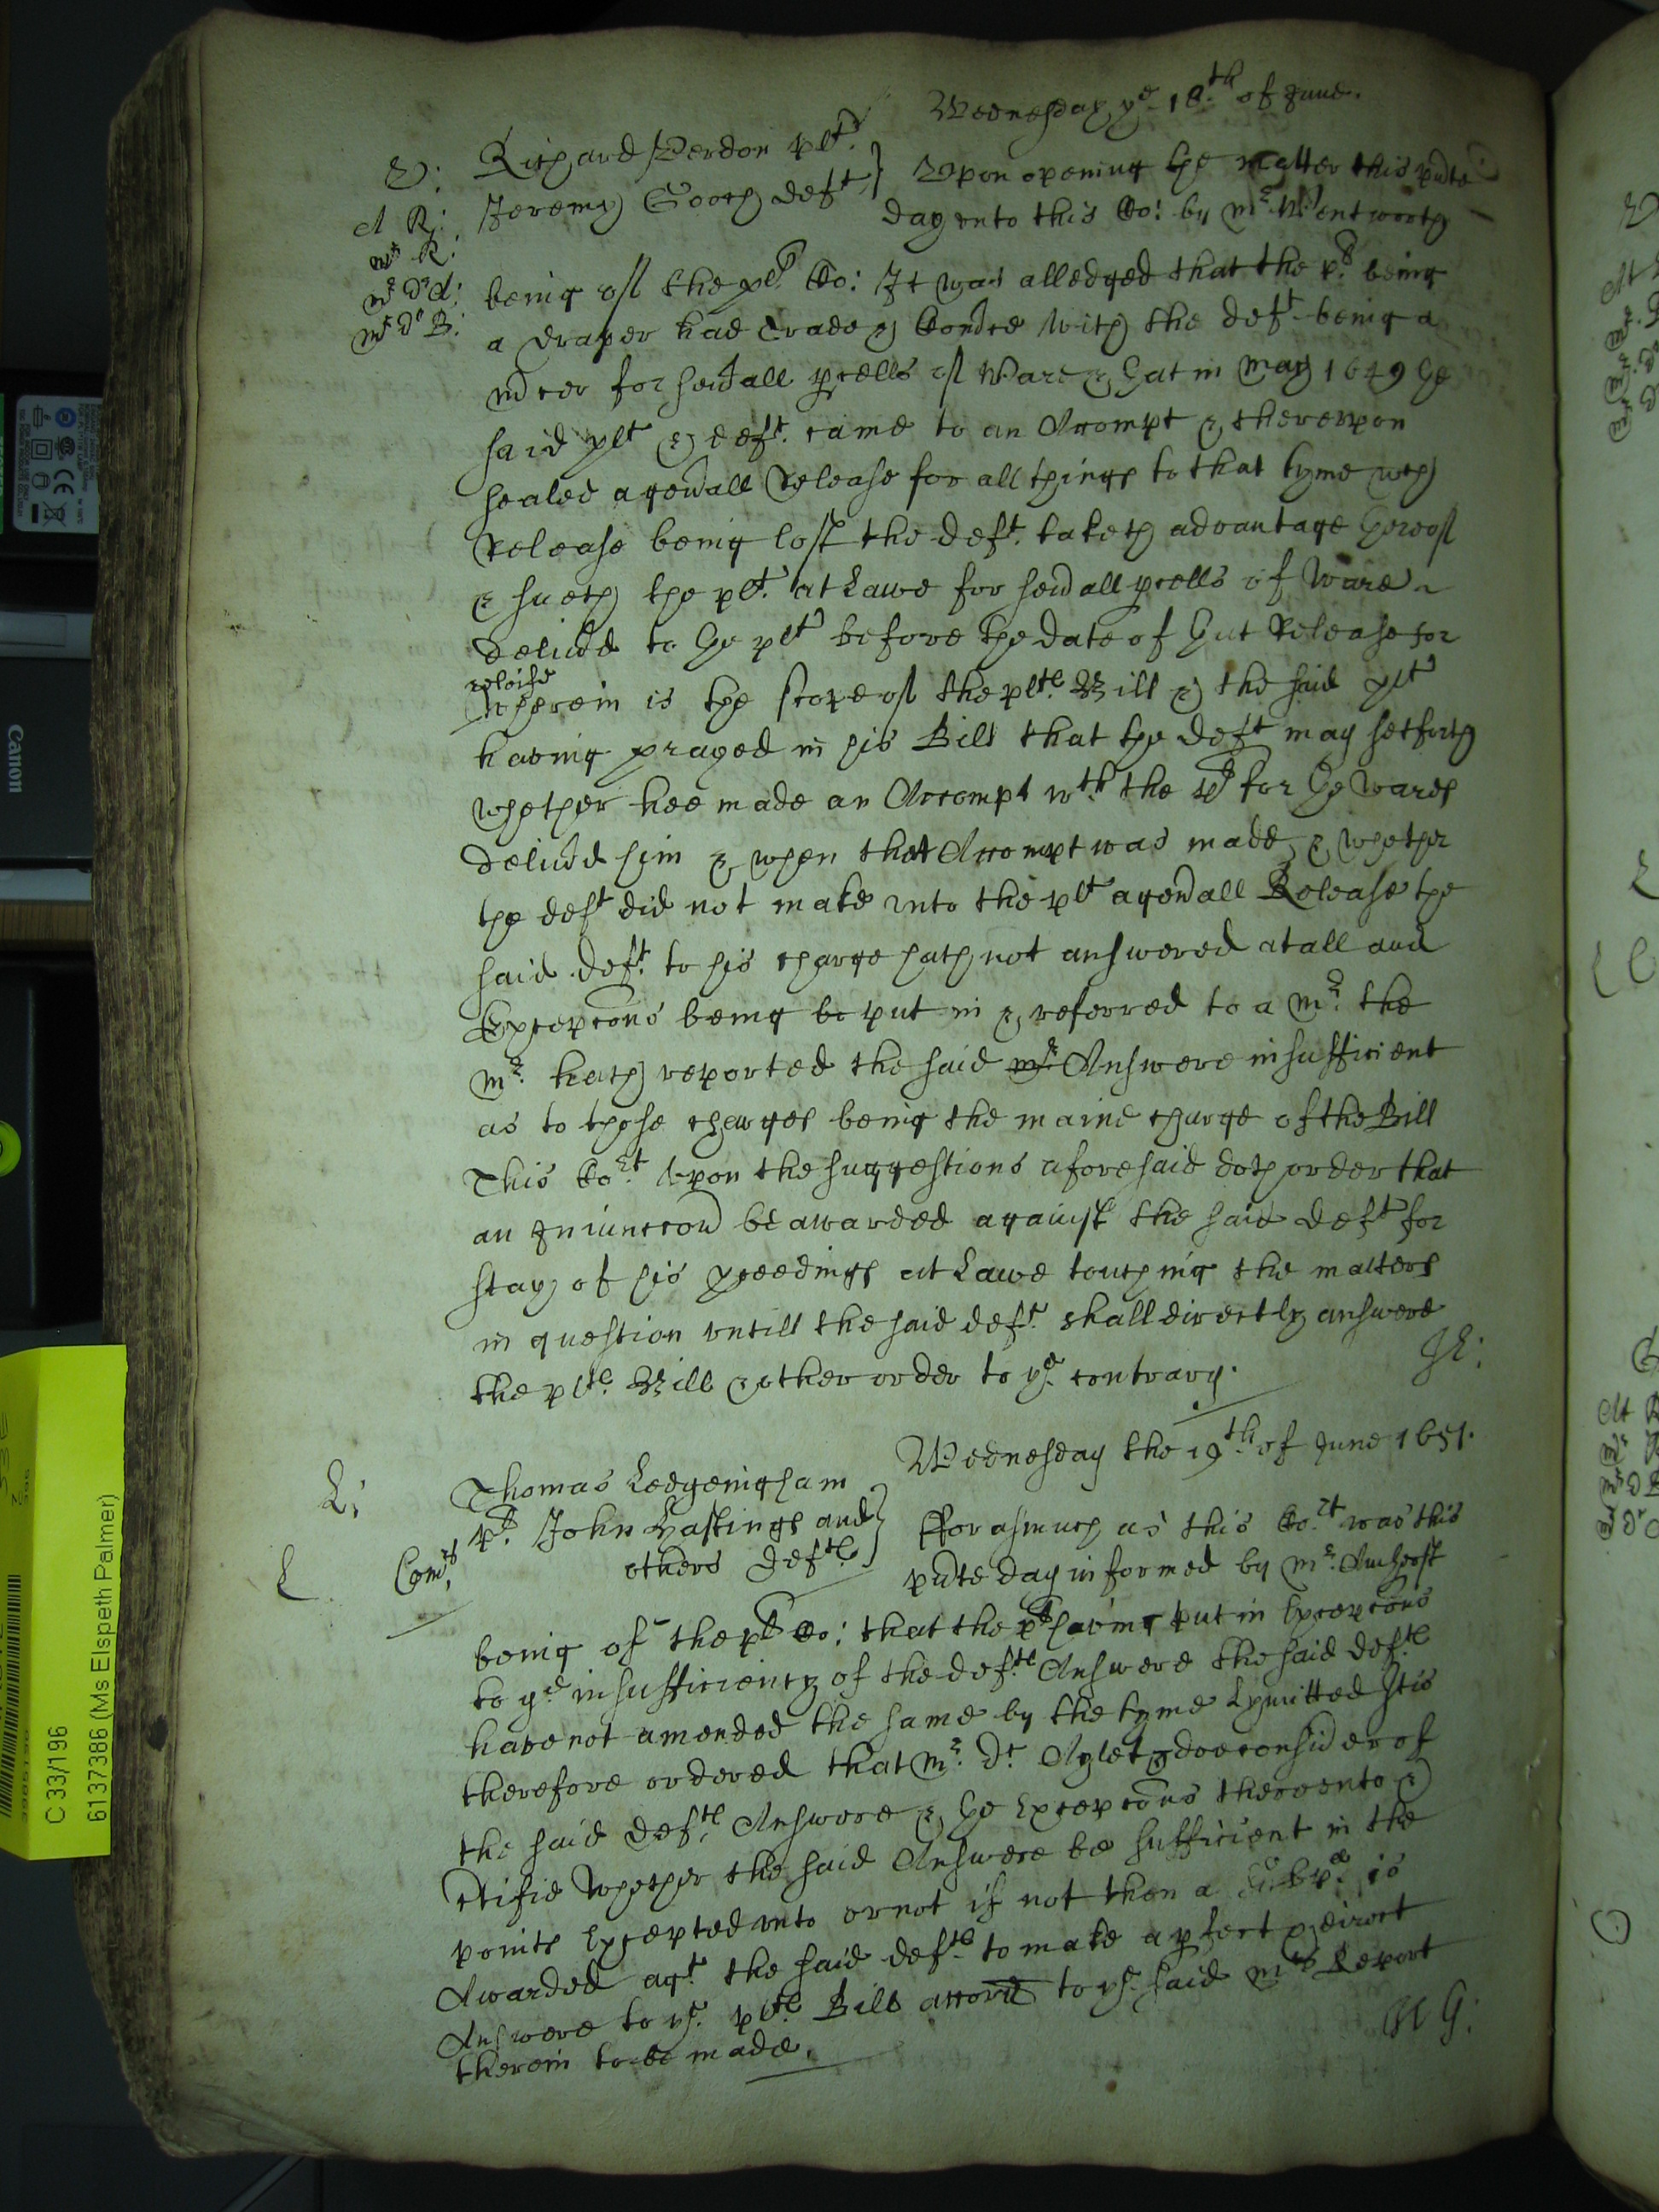 Wednesday ye 18th of June.
V:
A R:
mr R:
mr Dr A:
mr Dr B:
Richard Verdon plt
Jeremy Gooch deft
Vpon opening the matter this pnte
day vnto this Co: by mr Wentworth
being of the plts Co: It was alledged that the pt being
a draper had Trade & Comrce with the deft being a
mcer for seuall pcells of Ware & that in may 1649 the
said plt & deft came to an Accompt & therevpon
sealed a genall Release for all things to that tyme wch
Release being lost the deft taketh advantage thereof
& sueth the plt at Lawe for seuall pcells of Ware
deliuđd to the plt before the date of that Release for
releife
wherein is the scope of the pltes Bill & the said plt
having prayed in his Bill that the deft may set forth
whether hee made an Accompt wth the pt for the Wares
deliuđd him & when that Accompt was made & whether
the deft did not make vnto the plt a genall Release the
said deft to his charge hath not answered at all and
Excepcons being be put in & referred to a mr the
mr hath reported the said mr Answere insufficient
as to those charges being the maine charge of the Bill
This Cort Vpon the suggestions aforesaid doth order that
an Iniunccon be awarded against the said deft for
stay of his pceedings at Lawe touching the matters
in question vntill the said deft shall directly answere
the pltes Bill & other order to ye contrary.
Wednesday the 19th of June 1651.
L:
L
Thomas Ledgeingham
pt John Hastings and
others deftes
fforasmuch as this Cort was this
pnte day informed by mr Amherst
being of the pts Co: that the pt having put in Excepcons
to ye insufficiency of the deftes Answere the said deftes
have not amended the same by the tyme Lymitted It is
therefore ordered that mr Dr Aylett doe consider of
the said deftes Answere & the Excepcons therevnto &
ctifie Whether the said Answere be sufficient in the
points Excepted vnto or not if not then a Subpe is
Awarded agt the said deftes to make a pfect & direct
Answere to ye pltes Bill accord to ye said mrs Report
therein to be made.
Canon
C 33/196
6137386 (Ms Elspeth Palmer)